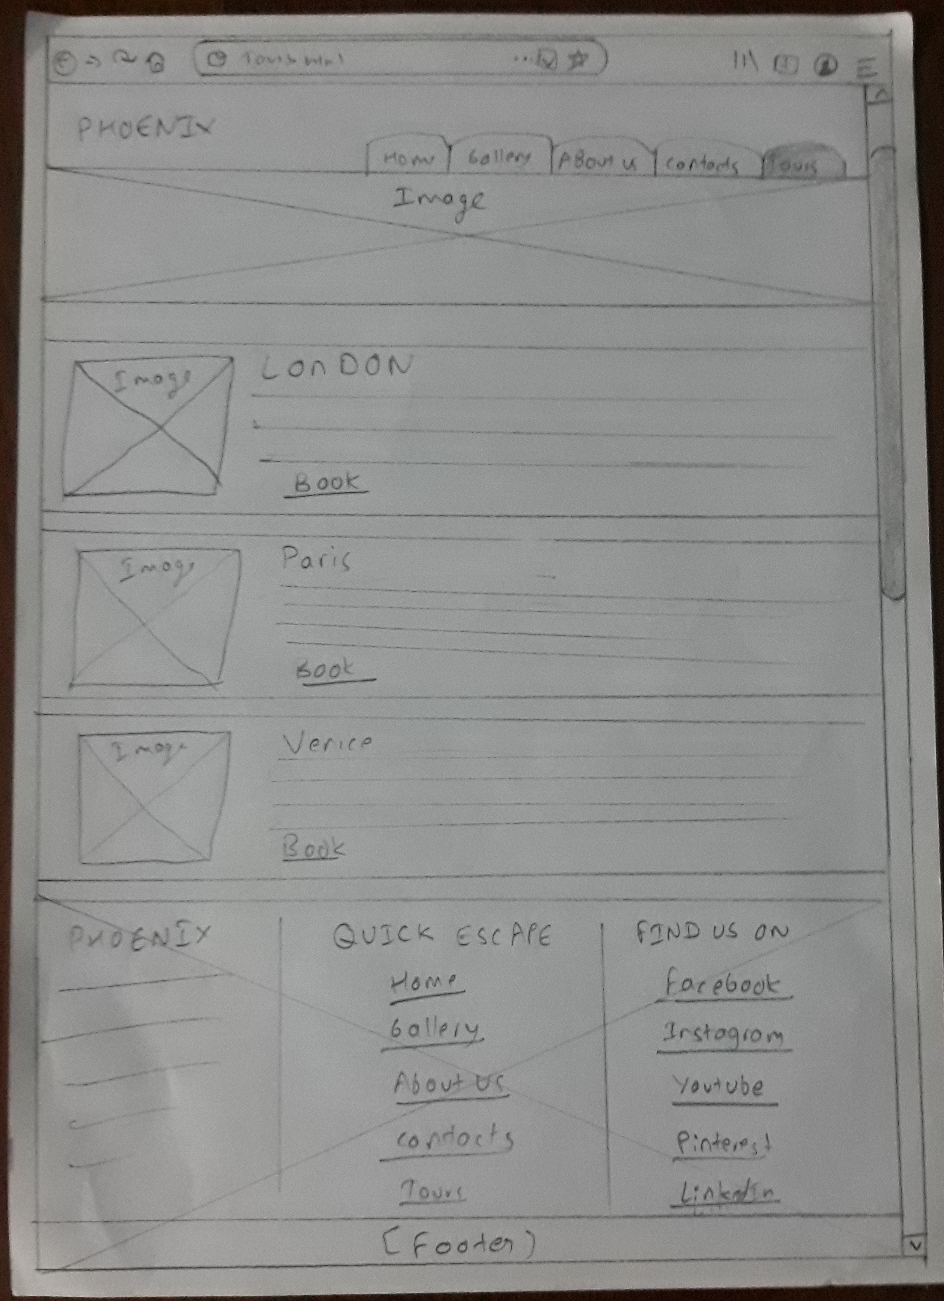 PHOENIX
Home Gallery About us Contacts Tours
Image
Image
LONDON
Book
Image
Paris
Book
Image
Venice
Book
PHOENIX
QUICK ESCAPE
Home
Gallery
About Us
Contacts
Tours
FIND US ON
Facebook
Instagram
Youtube
Pinterest
Linkedin
(Footer)